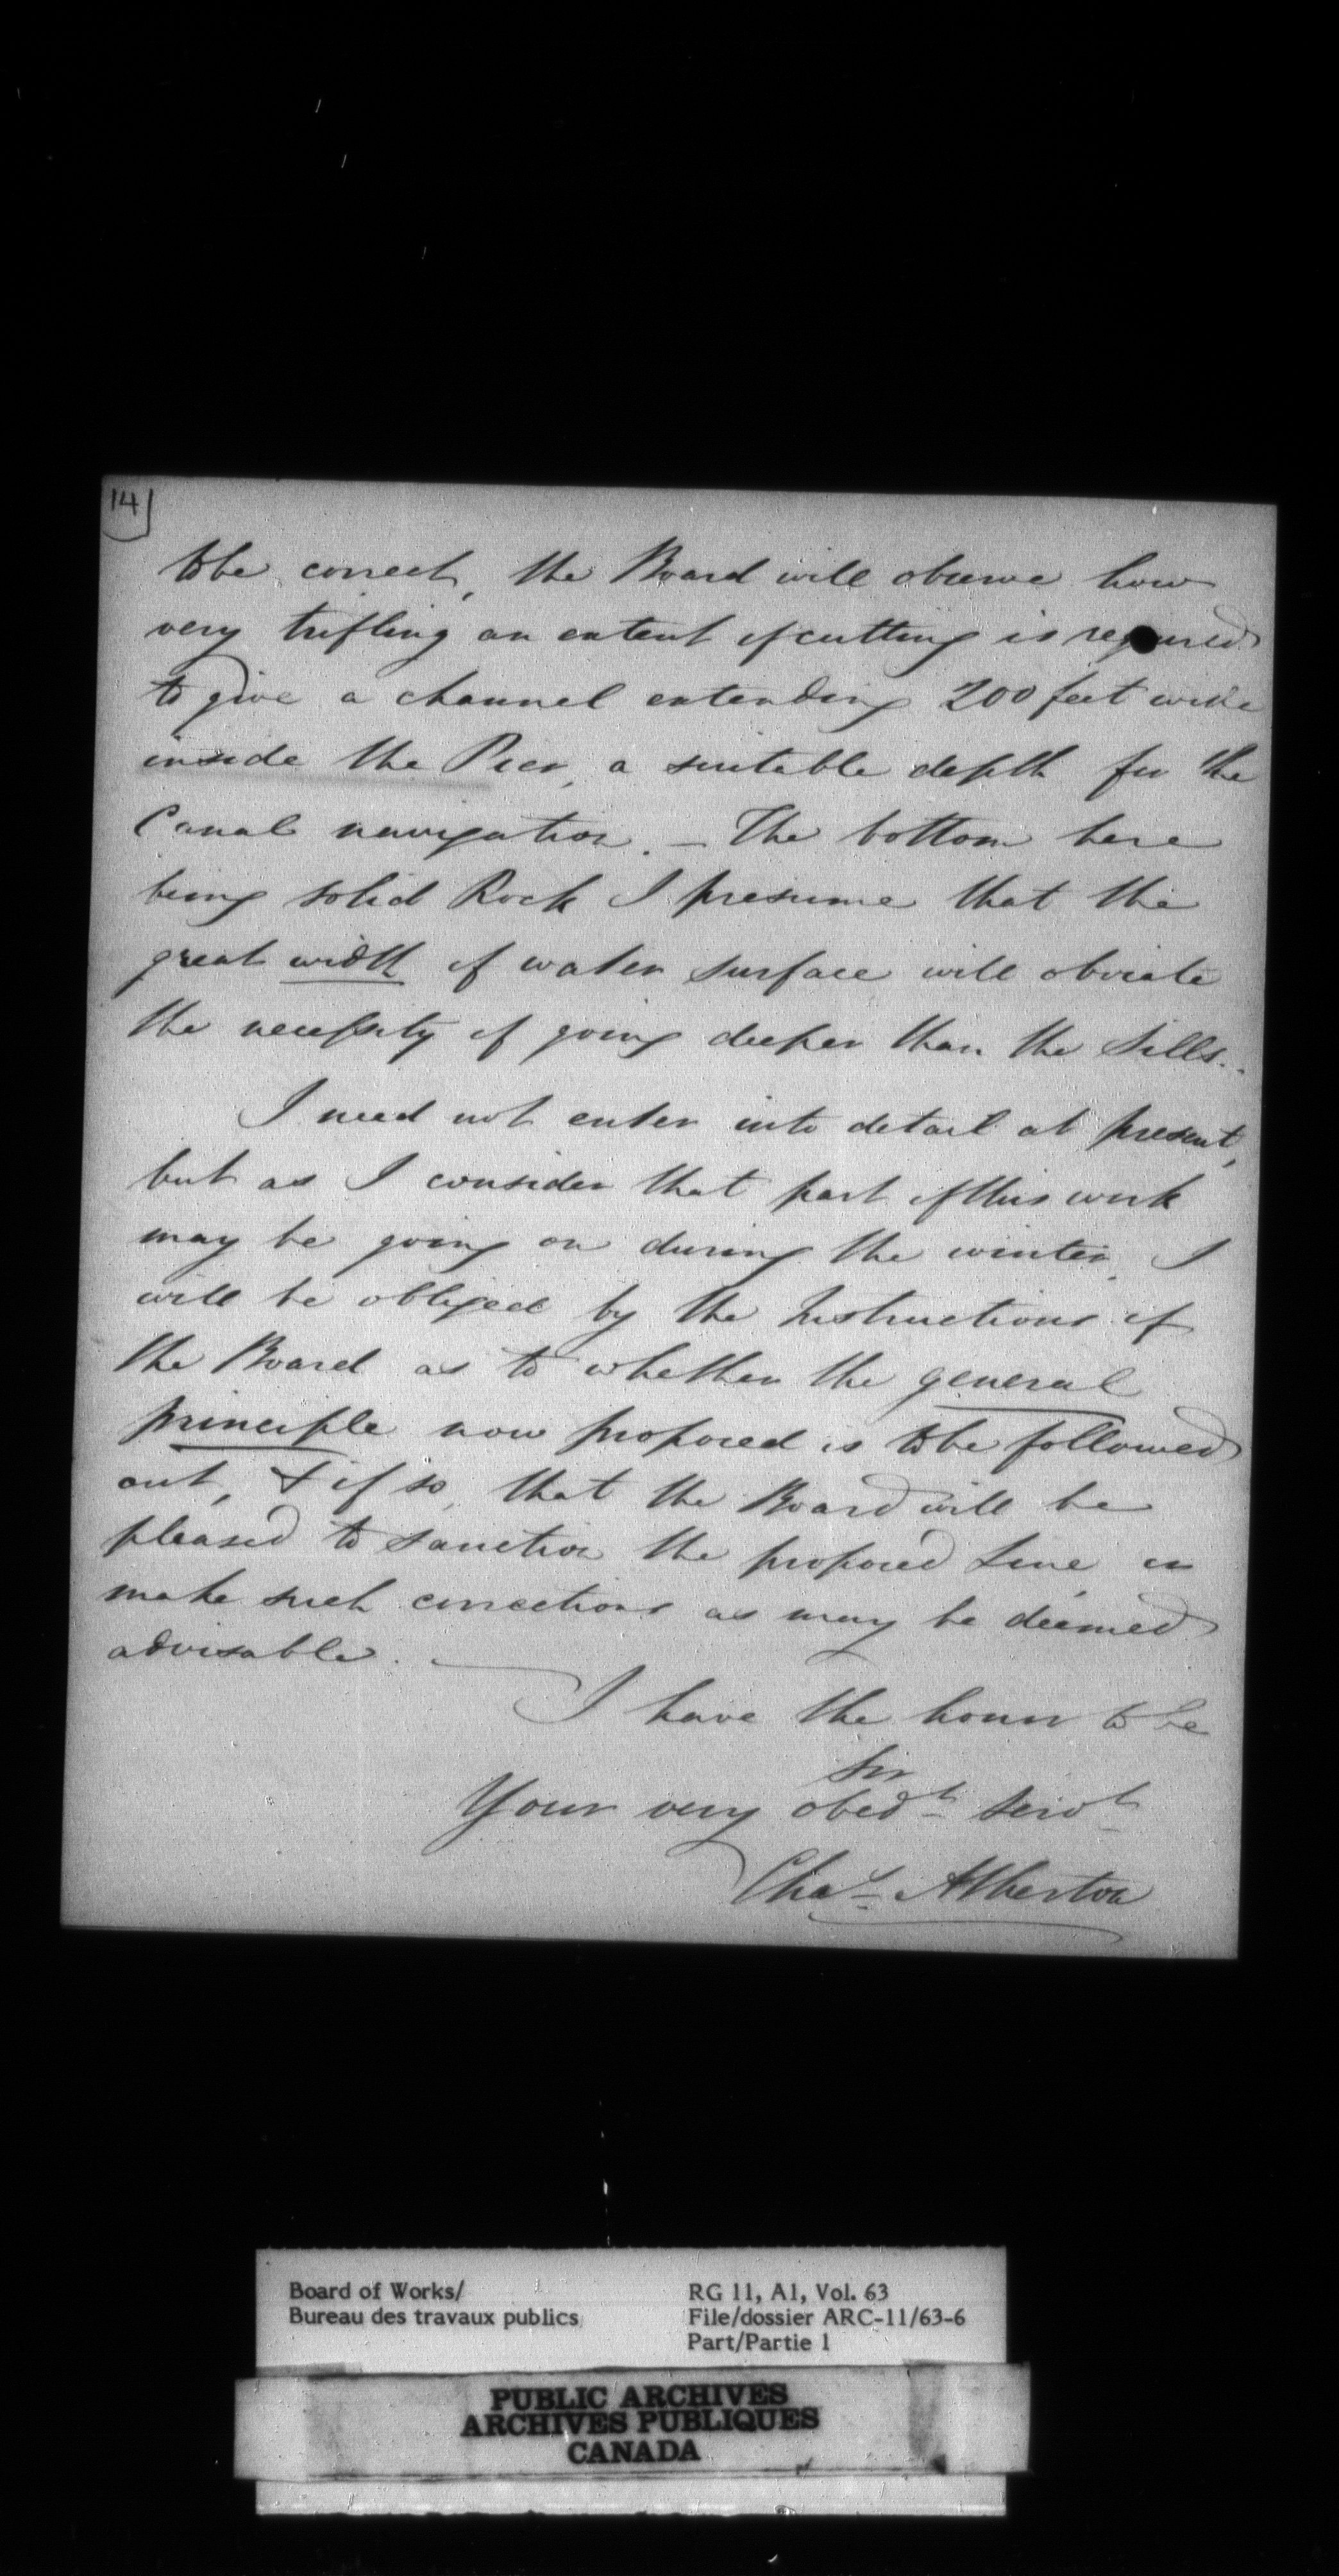 14
to be correct, the Board will observe how
very trifling an extent of cutting is required
to give a channel extending 200 feet wide
inside the Pier, a suitable depth for the
Canal navigation. — The bottom here
being solid Rock I presume that the
great width of water surface will obviate
the necessity of going deeper than the Sills..
I need not enter into detail at present,
but as I consider that part of this work
may be going on during the winter, I
will be obliged by the Instructions of
the Board as to whether the general
principle now proposed is to be followed
out, & if so, that the Board will be
pleased to sanction the proposed Line, or
make such corrections as may be deemed
advisable. —
I have the honor to be
Sir
Your very obedt servt
Chas Atherton
Board of Works/
Bureau des travaux publics
RG 11, A1, Vol. 63
File/dossier ARC-11/63-6
Part/Partie 1
PUBLIC ARCHIVES
ARCHIVES PUBLIQUES
CANADA